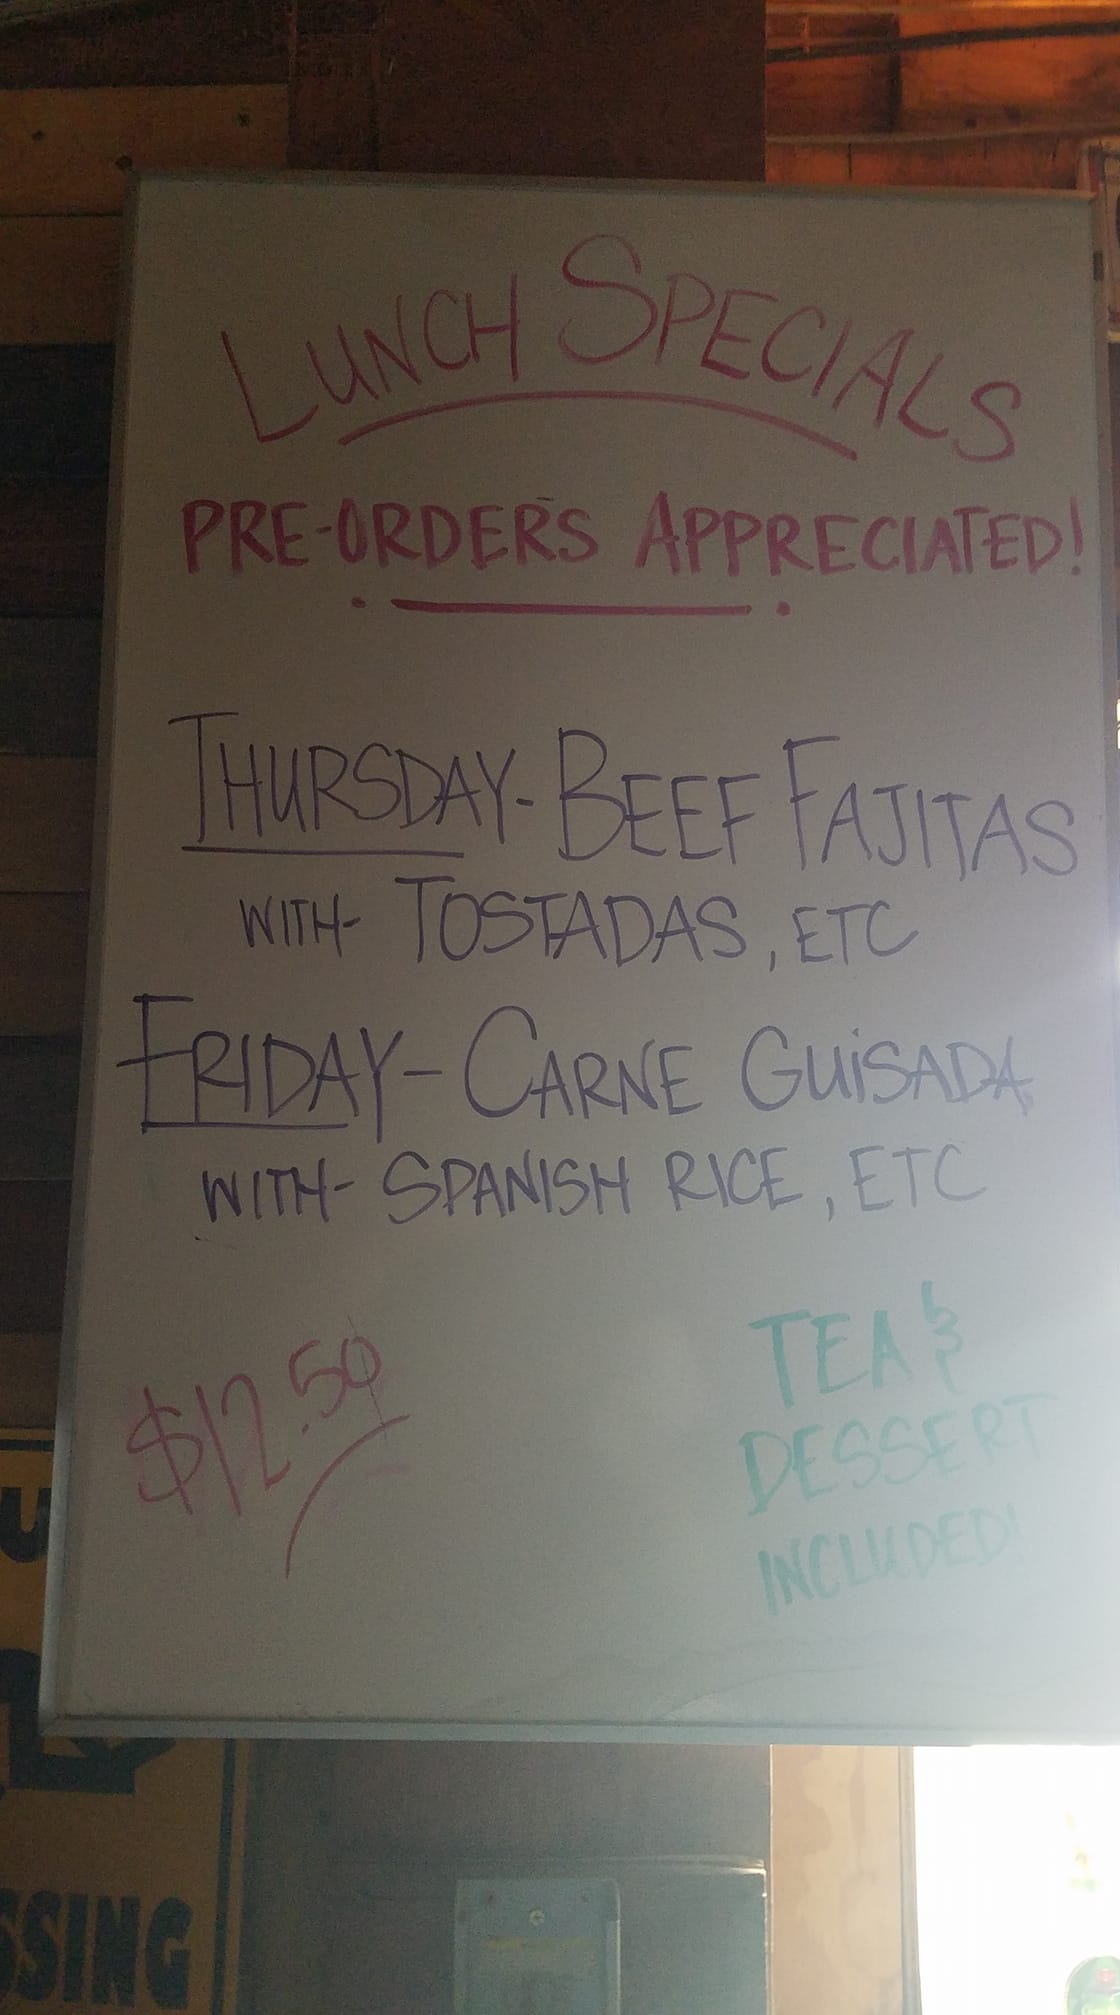 LUNCH SPECIALS
PRE-ORDERS APPRECIATED!
THURSDAY- BEEF FAJITAS
WITH- TOSTADAS, ETC
FRIDAY- CARNE GUISADA
WITH- SPANISH RICE, ETC
$12.50
TEA &
DESSERT
INCLUDED!
SSING